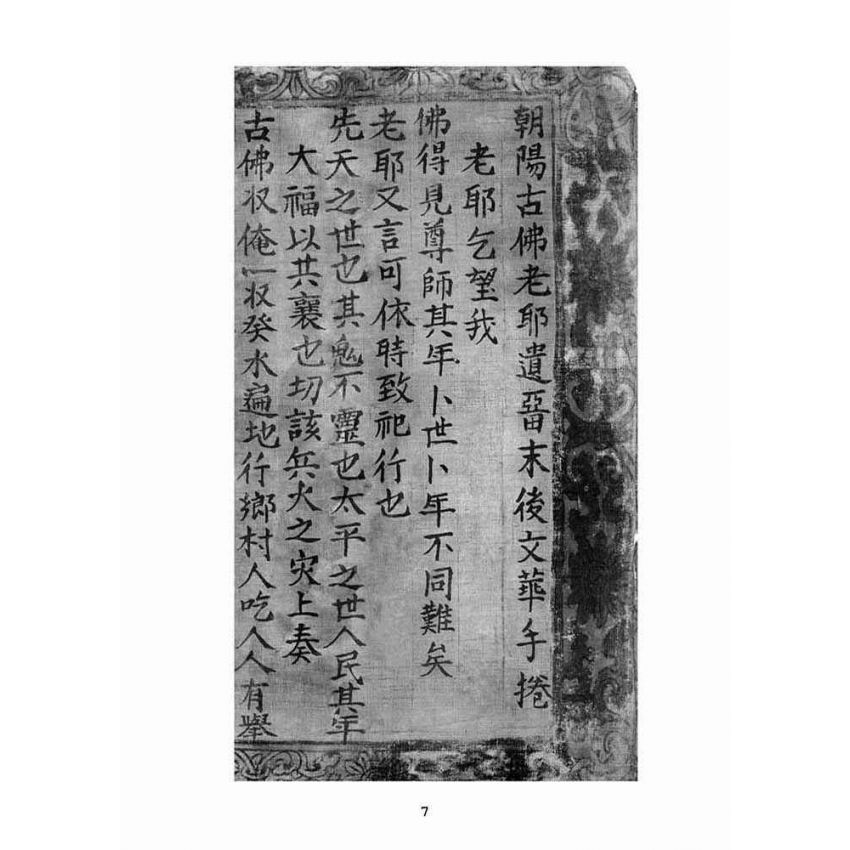 朝陽古佛老耶遺畱末後文華手捲
老耶乞望我
佛得見尊師其年卜世卜年不同難矣
老耶又言可依時致祀行也
先天之世也其鬼不靈也太平之世人民其年
大福以共襄也切該兵火之灾上奏
古佛収俺一収癸水遍地行鄉村人吃人人有舉
7